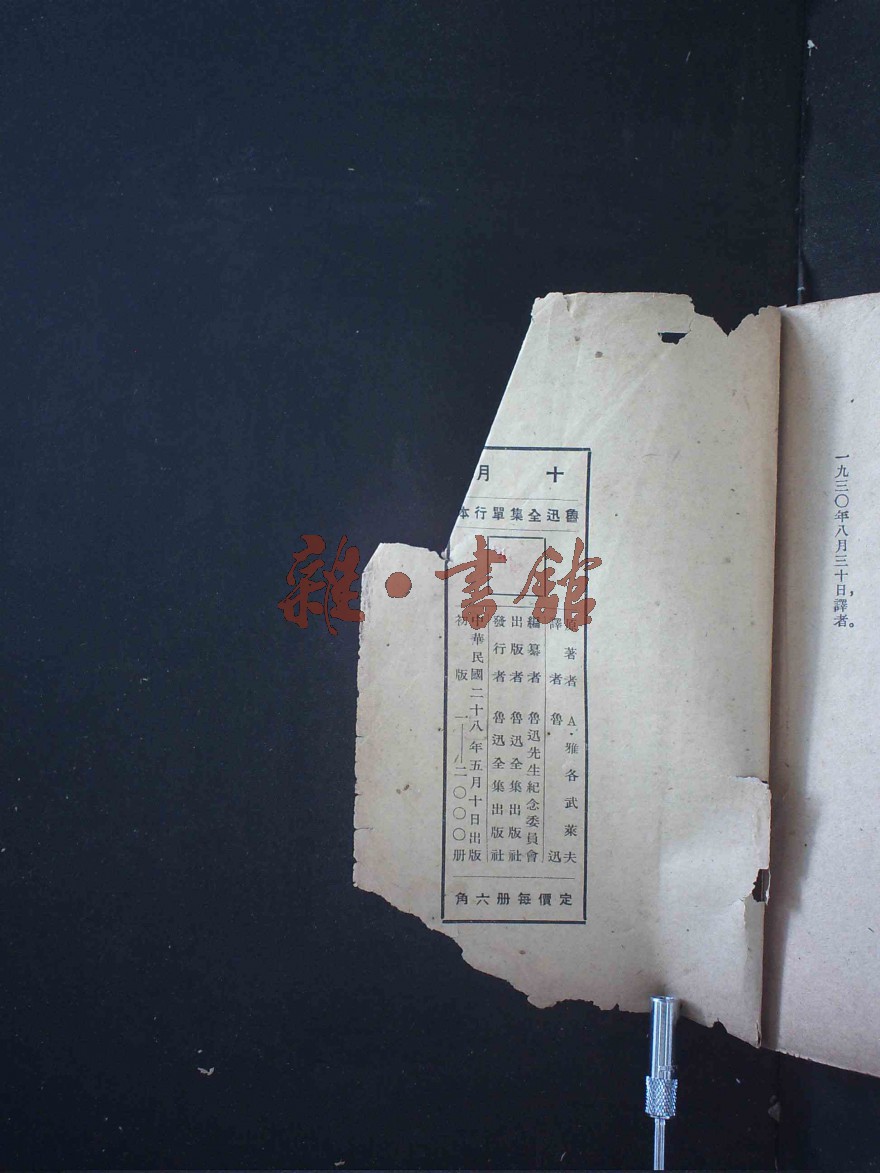 一九三〇年八月三十日，譯者。
十月
魯迅全集單行本
著者 A·雅各武萊夫
譯者 魯迅
編纂者 魯迅先生紀念委員會
出版者 魯迅全集出版社
發行者 魯迅全集出版社
中華民國二十八年五月十日出版
初版 一——二〇〇〇册
定價每册六角
雜·書館